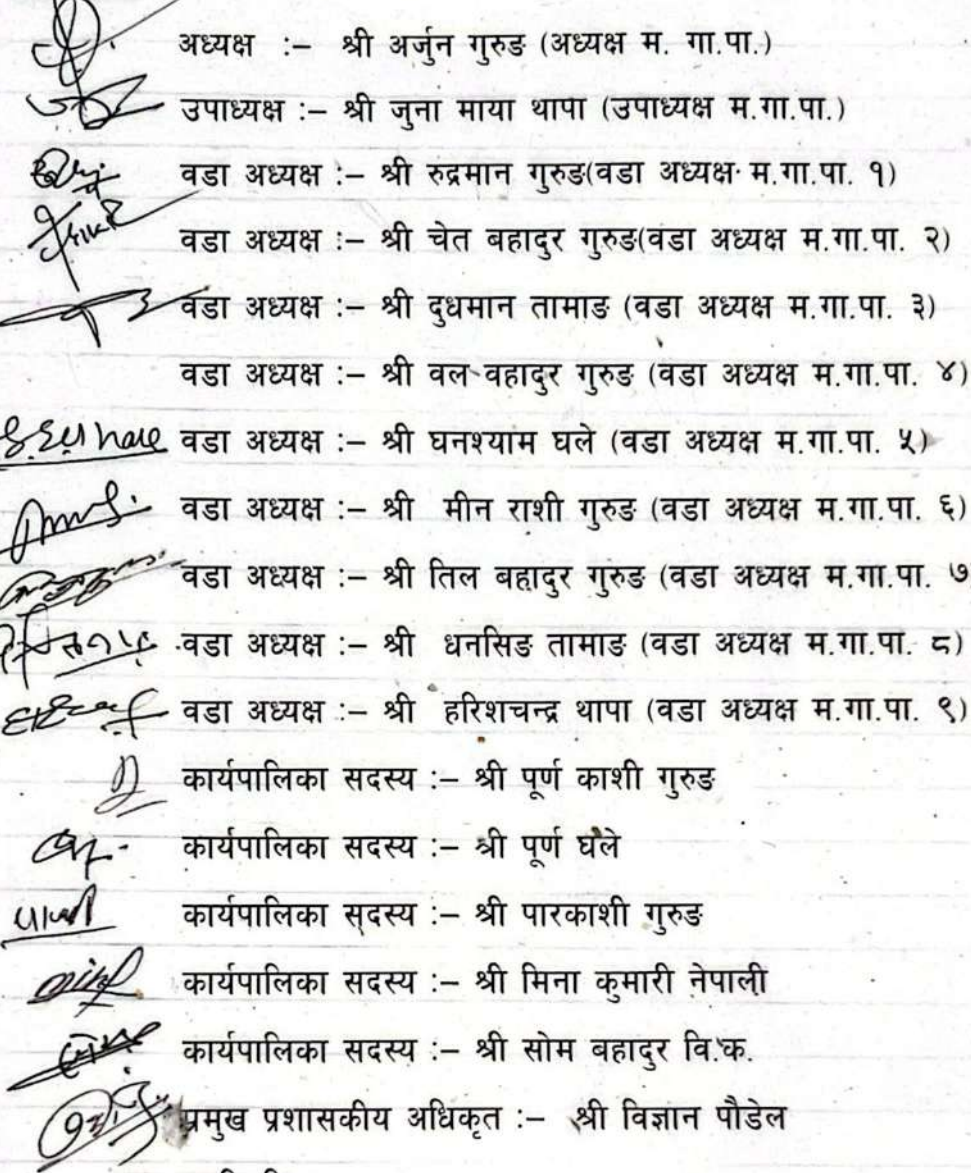 अध्यक्ष :– श्री अर्जुन गुरुङ (अध्यक्ष म. गा.पा.)
उपाध्यक्ष :– श्री जुना माया थापा (उपाध्यक्ष म.गा.पा.)
वडा अध्यक्ष :– श्री रुद्रमान गुरुङ(वडा अध्यक्ष म.गा.पा. १)
वडा अध्यक्ष :– श्री चेत बहादुर गुरुङ(वडा अध्यक्ष म.गा.पा. २)
वडा अध्यक्ष :– श्री दुधमान तामाङ (वडा अध्यक्ष म.गा.पा. ३)
वडा अध्यक्ष :– श्री वल वहादुर गुरुङ (वडा अध्यक्ष म.गा.पा. ४)
वडा अध्यक्ष :– श्री घनश्याम घले (वडा अध्यक्ष म.गा.पा. ५)
वडा अध्यक्ष :– श्री मीन राशी गुरुङ (वडा अध्यक्ष म.गा.पा. ६)
वडा अध्यक्ष :– श्री तिल बहादुर गुरुङ (वडा अध्यक्ष म.गा.पा. ७
वडा अध्यक्ष :– श्री धनसिङ तामाङ (वडा अध्यक्ष म.गा.पा. ८)
वडा अध्यक्ष :– श्री हरिशचन्द्र थापा (वडा अध्यक्ष म.गा.पा. ९)
कार्यपालिका सदस्य :– श्री पूर्ण काशी गुरुङ
कार्यपालिका सदस्य :– श्री पूर्ण घले
कार्यपालिका सदस्य :– श्री पारकाशी गुरुङ
कार्यपालिका सदस्य :– श्री मिना कुमारी नेपाली
कार्यपालिका सदस्य :– श्री सोम बहादुर वि.क.
प्रमुख प्रशासकीय अधिकृत :– श्री विज्ञान पौडेल